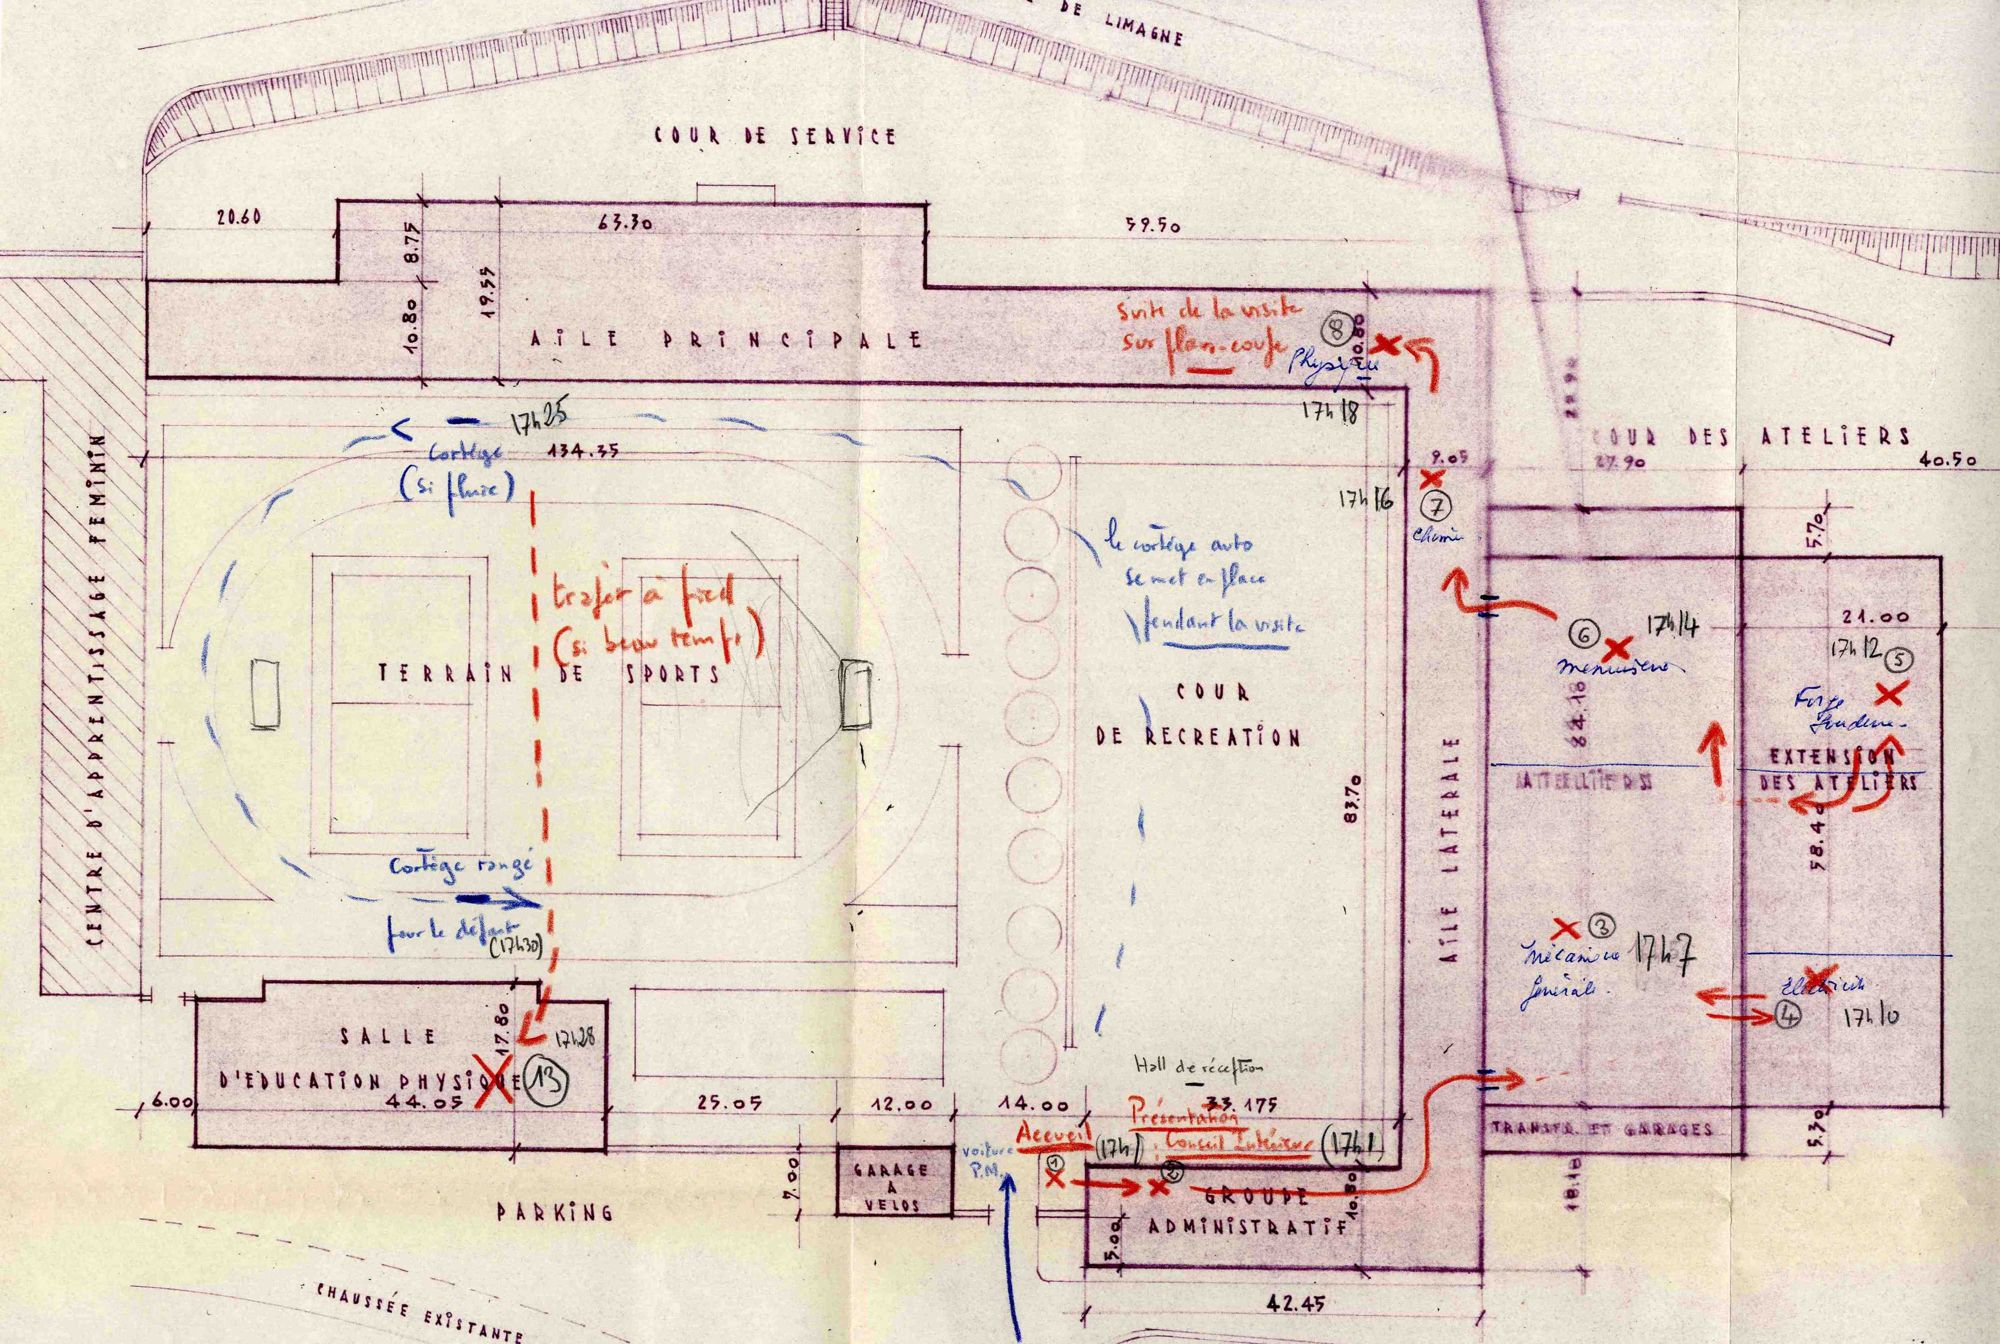 DE LIMAGNE
COUR DE SERVICE
20.60
8.75
19.55
10.80
63.30
59.50
AiLE PRiNCiPALE
suite de la visite
sur plan-coupe
8
10.80
Physique
17h18
17h25
Cortège
(si pluie)
134.35
9.05
COUR DES ATELiERS
27.90
40.50
17h16
7
Chimie
5.70
le cortège auto
se met en place
pendant la visite
trajet à pied
(si beau temps)
TERRAiN DE SPORTS
COUR
DE RECREATiON
CENTRE D'APPRENTiSSAGE FEMiNiN
6
17h14
Menuiserie
21.00
17h12
5
Forge
Soudure
64.10
EXTENSiON
DES ATELiERS
ATELiERS
58.40
83.70
AiLE LATERALE
Cortège rangé
pour le départ
(17h30)
3
Mécanique
Générale.
17h7
Electricité
4
17h10
SALLE
D'EDUCATiON PHYSiQUE
17.80
17h28
13
Hall de réception
6.00
44.05
25.05
12.00
14.00
33.175
Présentation
Conseil Intérieur
(17h1)
Accueil
(17h)
voiture
P.M.
1
2
TRANSFR. ET GARAGES
5.30
GARAGE
A
VELOS
7.00
GROUPE
ADMiNiSTRATiF
10.80
5.00
18.18
PARKiNG
CHAUSSÉE EXiSTANTE
42.45